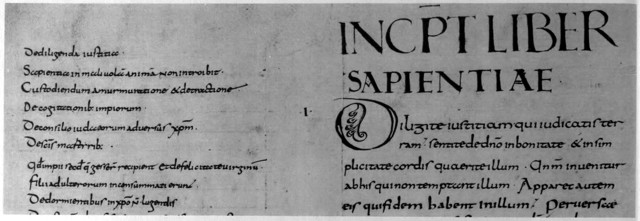 De diligenda iustitia.
Sapientia in malivola anima non introibit.
Custodiendum a murmuratione & detractione
De cogitationib. impiorum.
De consilio iudaeorum adversus xpm.
De scis martirib.
Qd impii sedqd gesser recipient et de felicitate virginu
Filii adulterorum inconsummati erunt
De dormientibus in xpo n lugendis
INCPT LIBER
SAPIENTIAE
Diligite iustitiam qui iudicatis ter
ram. sentite de dno in bonitate & in sim
plicitate cordis quaerite illum. Qnm invenitur
ab his qui non temptant illum. Apparet autem
eis qui fidem habent in illum. Perversae